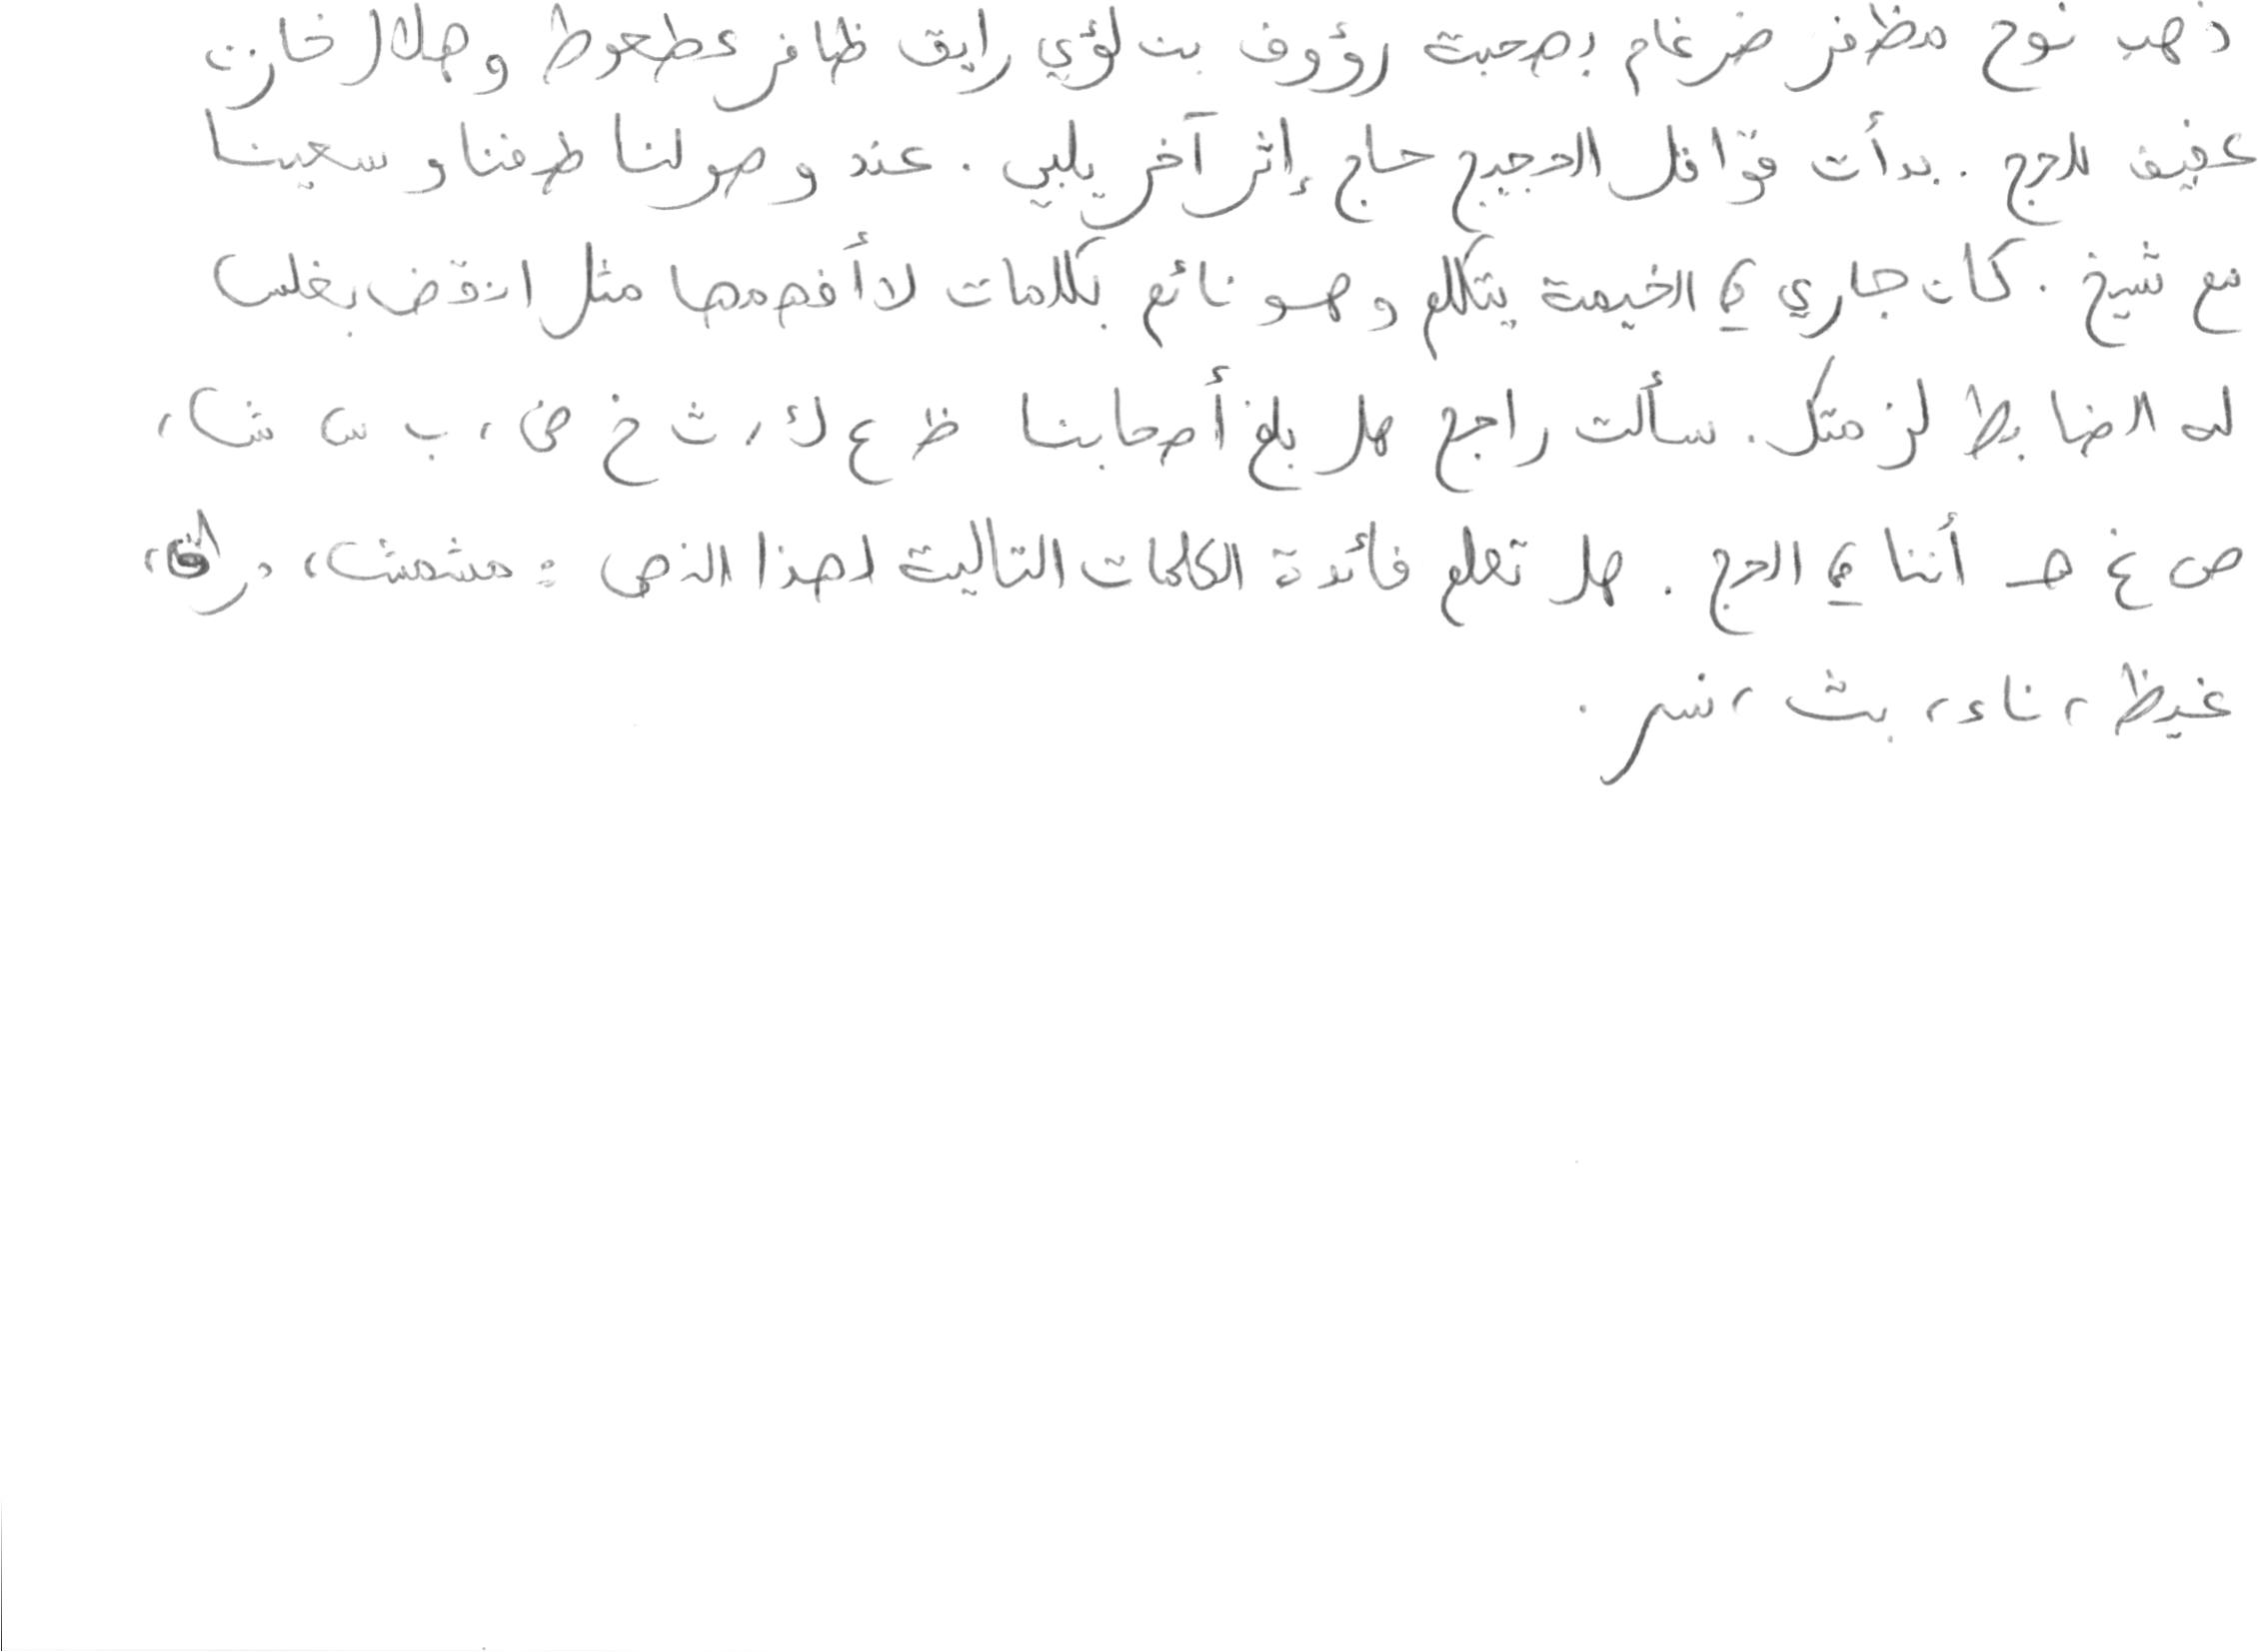 ذهب نوح مظفر ضرغام بصحبة رؤوف بن لؤي رايق ظافر عطعوط وهلال خازن
عفيف للحج . بدأت قوافل الحجيج حاج إثر آخر يلبي . عند وصولنا طفنا وسعينا
مع شيخ . كان جاري في الخيمة يتكلم وهو نائم بكلمات لا أفهمها مثل انقض بغلس
له الضابط لزمتك . سألت راجح هل بلغ أصحابنا ظ ع ك ، ث خ ض ، ب س ش ،
ص غ هـ أننا في الحج . هل تعلم فائدة الكلمات التالية لهذا النص : مشمش ،
غيظ ، ناء ، بث ، نسر .